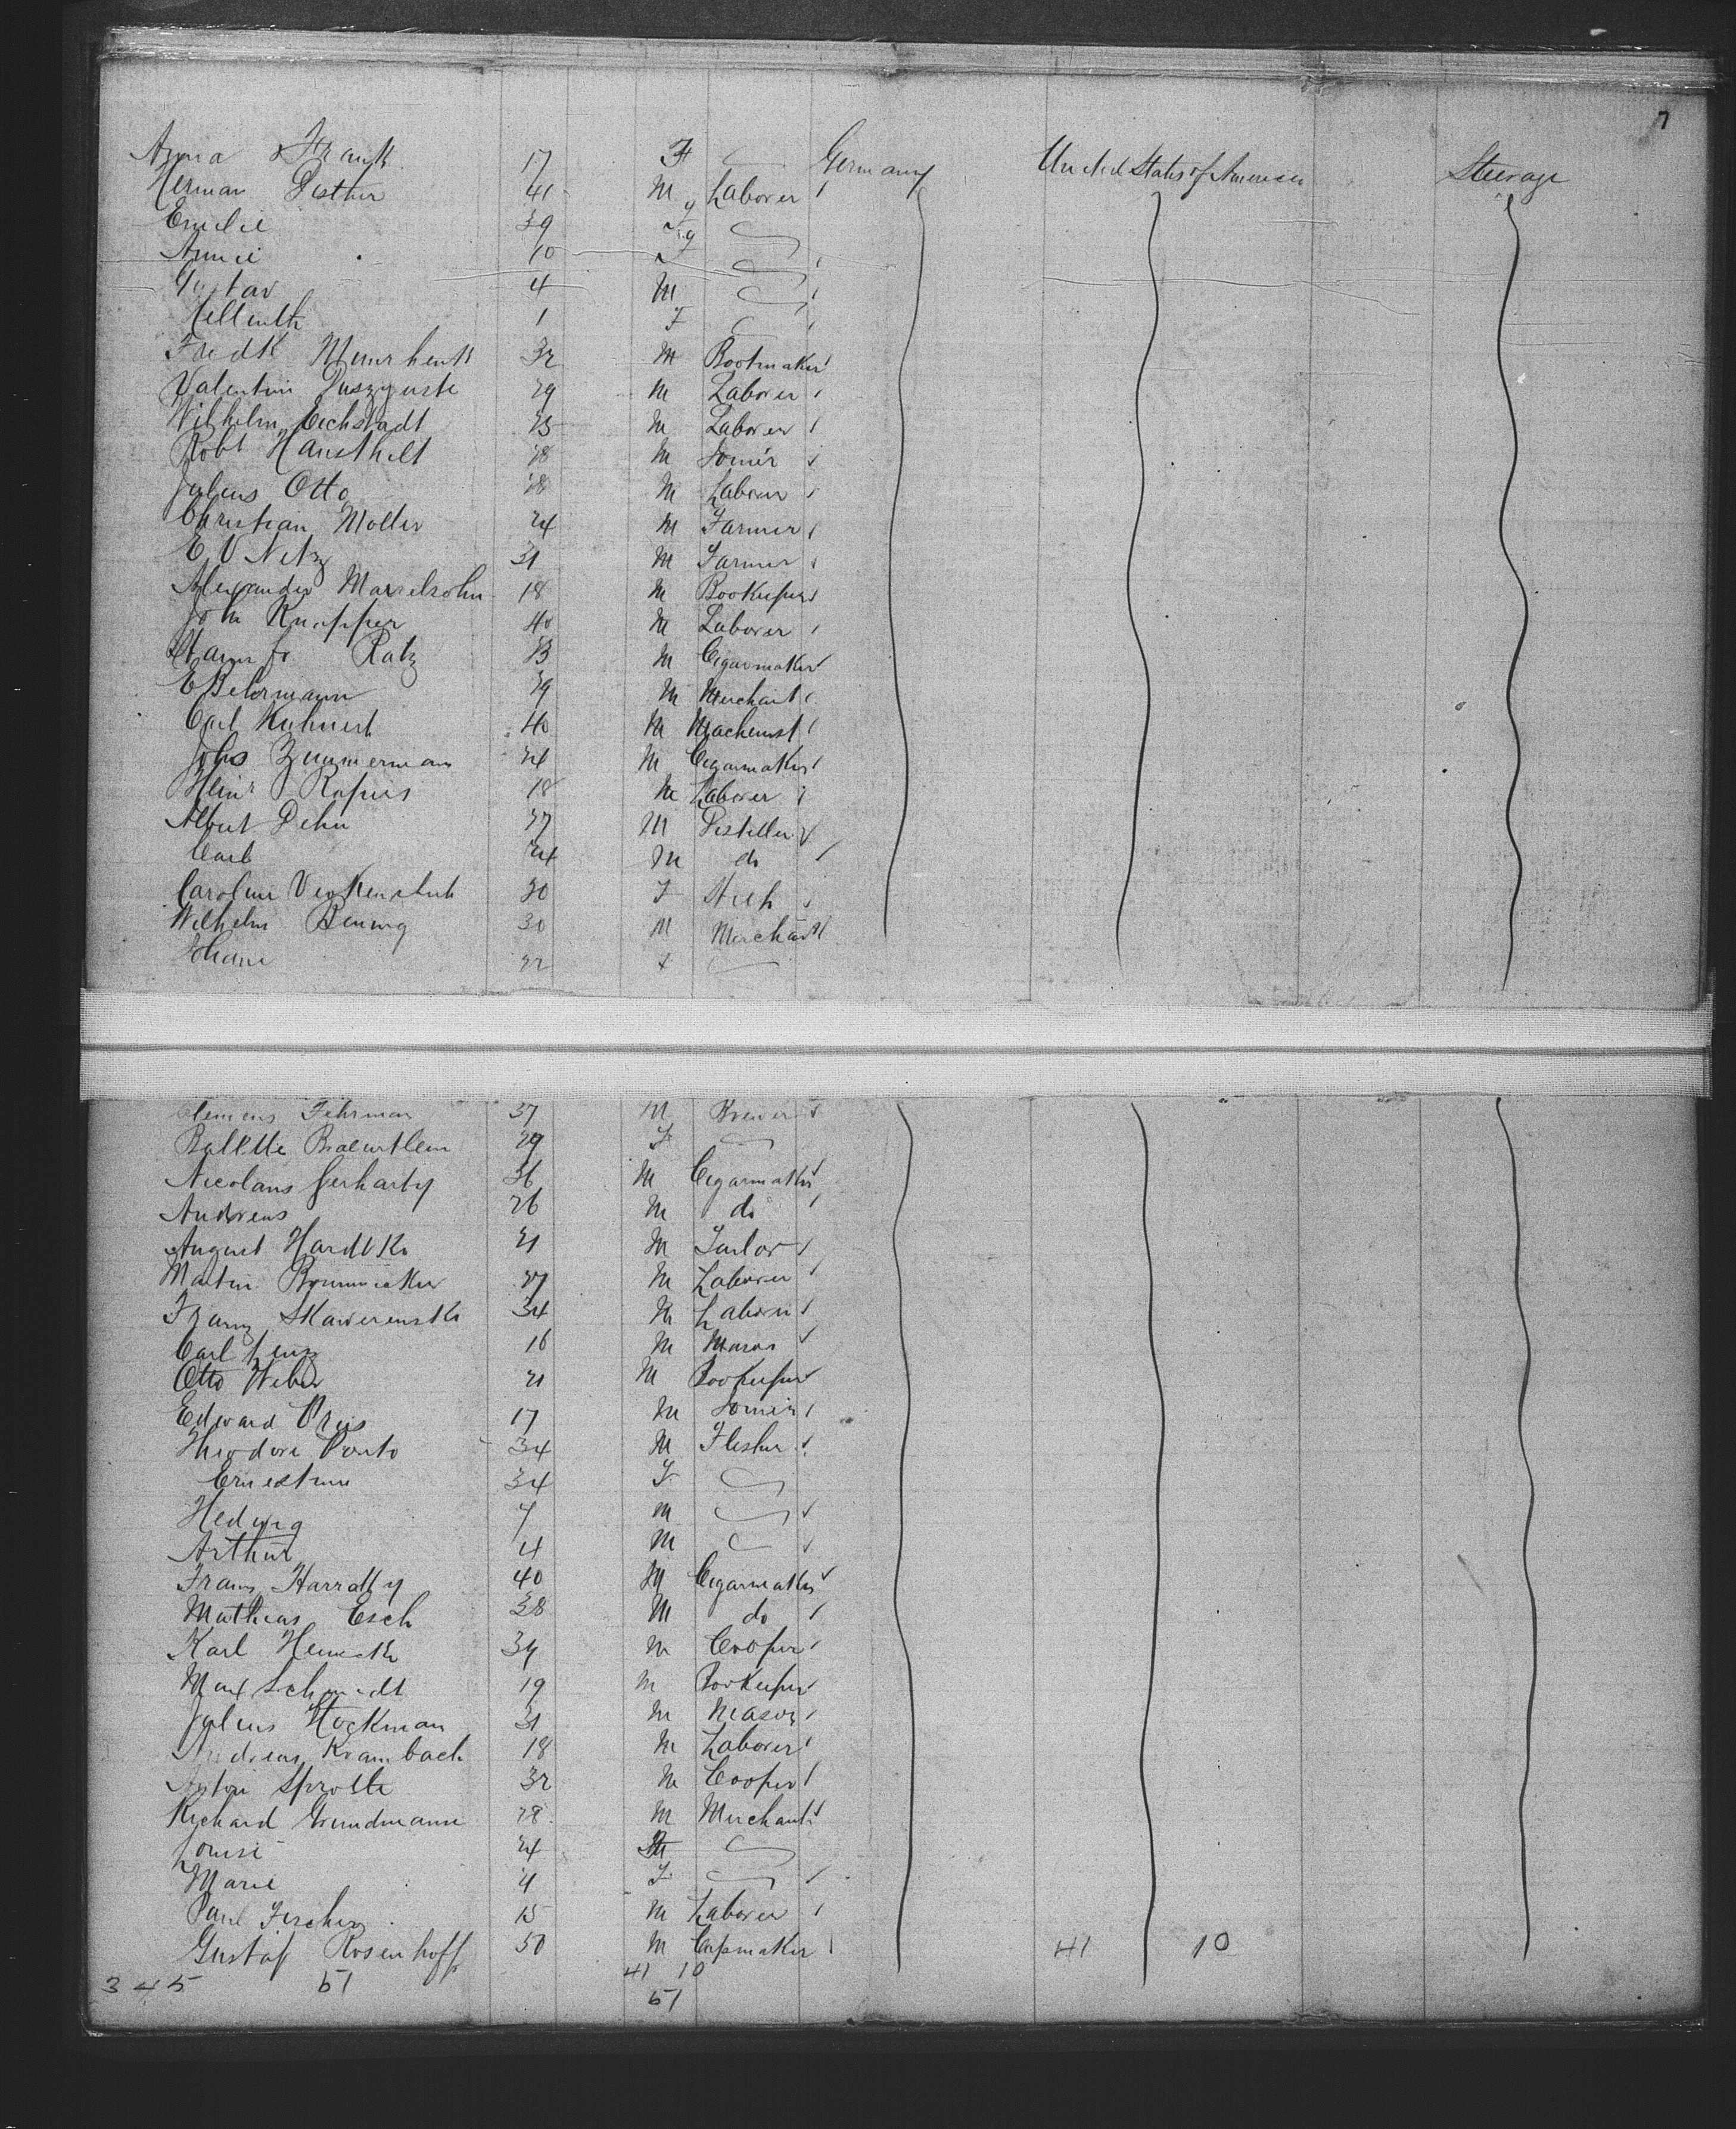 7
Anna Strauk 17 F Germany United States of America Steerage
Herman Disther 41 M Laborer
Emelie 39 F
Annie 10 F
Gustav 4 M
1 F
Fredk 32 M Bootmaker
Valentin 29 M Laborer
Wilhelm Eichstadt 25 M Laborer
Robt Hansthilt 28 M Joiner
Julius Otto 28 M Laborer
Christian Moller 24 M Farmer
E V Netz 31 M Farmer
Alexander Marselsohn 18 M Bookeeper
John Knapper 40 M Laborer
Ratz 23 M Cigarmaker
E Behrmann 29 M Merchant
Carl Kuhnert 40 M Machenist
Johs Zimmerman 24 M Cigarmaker
Heinr Rapius 18 M Laborer
Albert Dehn 27 M Distiller
Carl 24 M do
Caroline 20 F
Wilhelm Benwig 30 M Merchant
Johane 22 F
Clemens Fehrman 37 M Brewer
Babette 29 F
Nicolaus Gerharty 36 M Cigarmaker
Andreas 26 M do
August Hardtke 21 M Tailor
Martin 27 M Laborer
Franz Skawerenski 34 M Laborer
Carl Lenz 16 M Mason
Otto Weber 21 M Bookeeper
Edward Preis 17 M Joiner
Theodore Ponto 34 M Flesher
Ernestine 34 F
Hedwig 7 M
Arthur 4 M
Franz Harratty 40 M Cigarmaker
Mathias Esch 38 M do
Karl 34 M Cooper
Max Schmidt 19 M Bookeeper
Julius Hockman 31 M Mason
Andreas Krambach 18 M Laborer
Anton Sprotte 32 M Cooper
Richard Grundmann 28 M Merchant
Louise 24
Marie 4 F
Paul Fischer 15 M Laborer
Gustaf Rosenhoff 50 M Capmaker 41 10
345 51 41 10
51